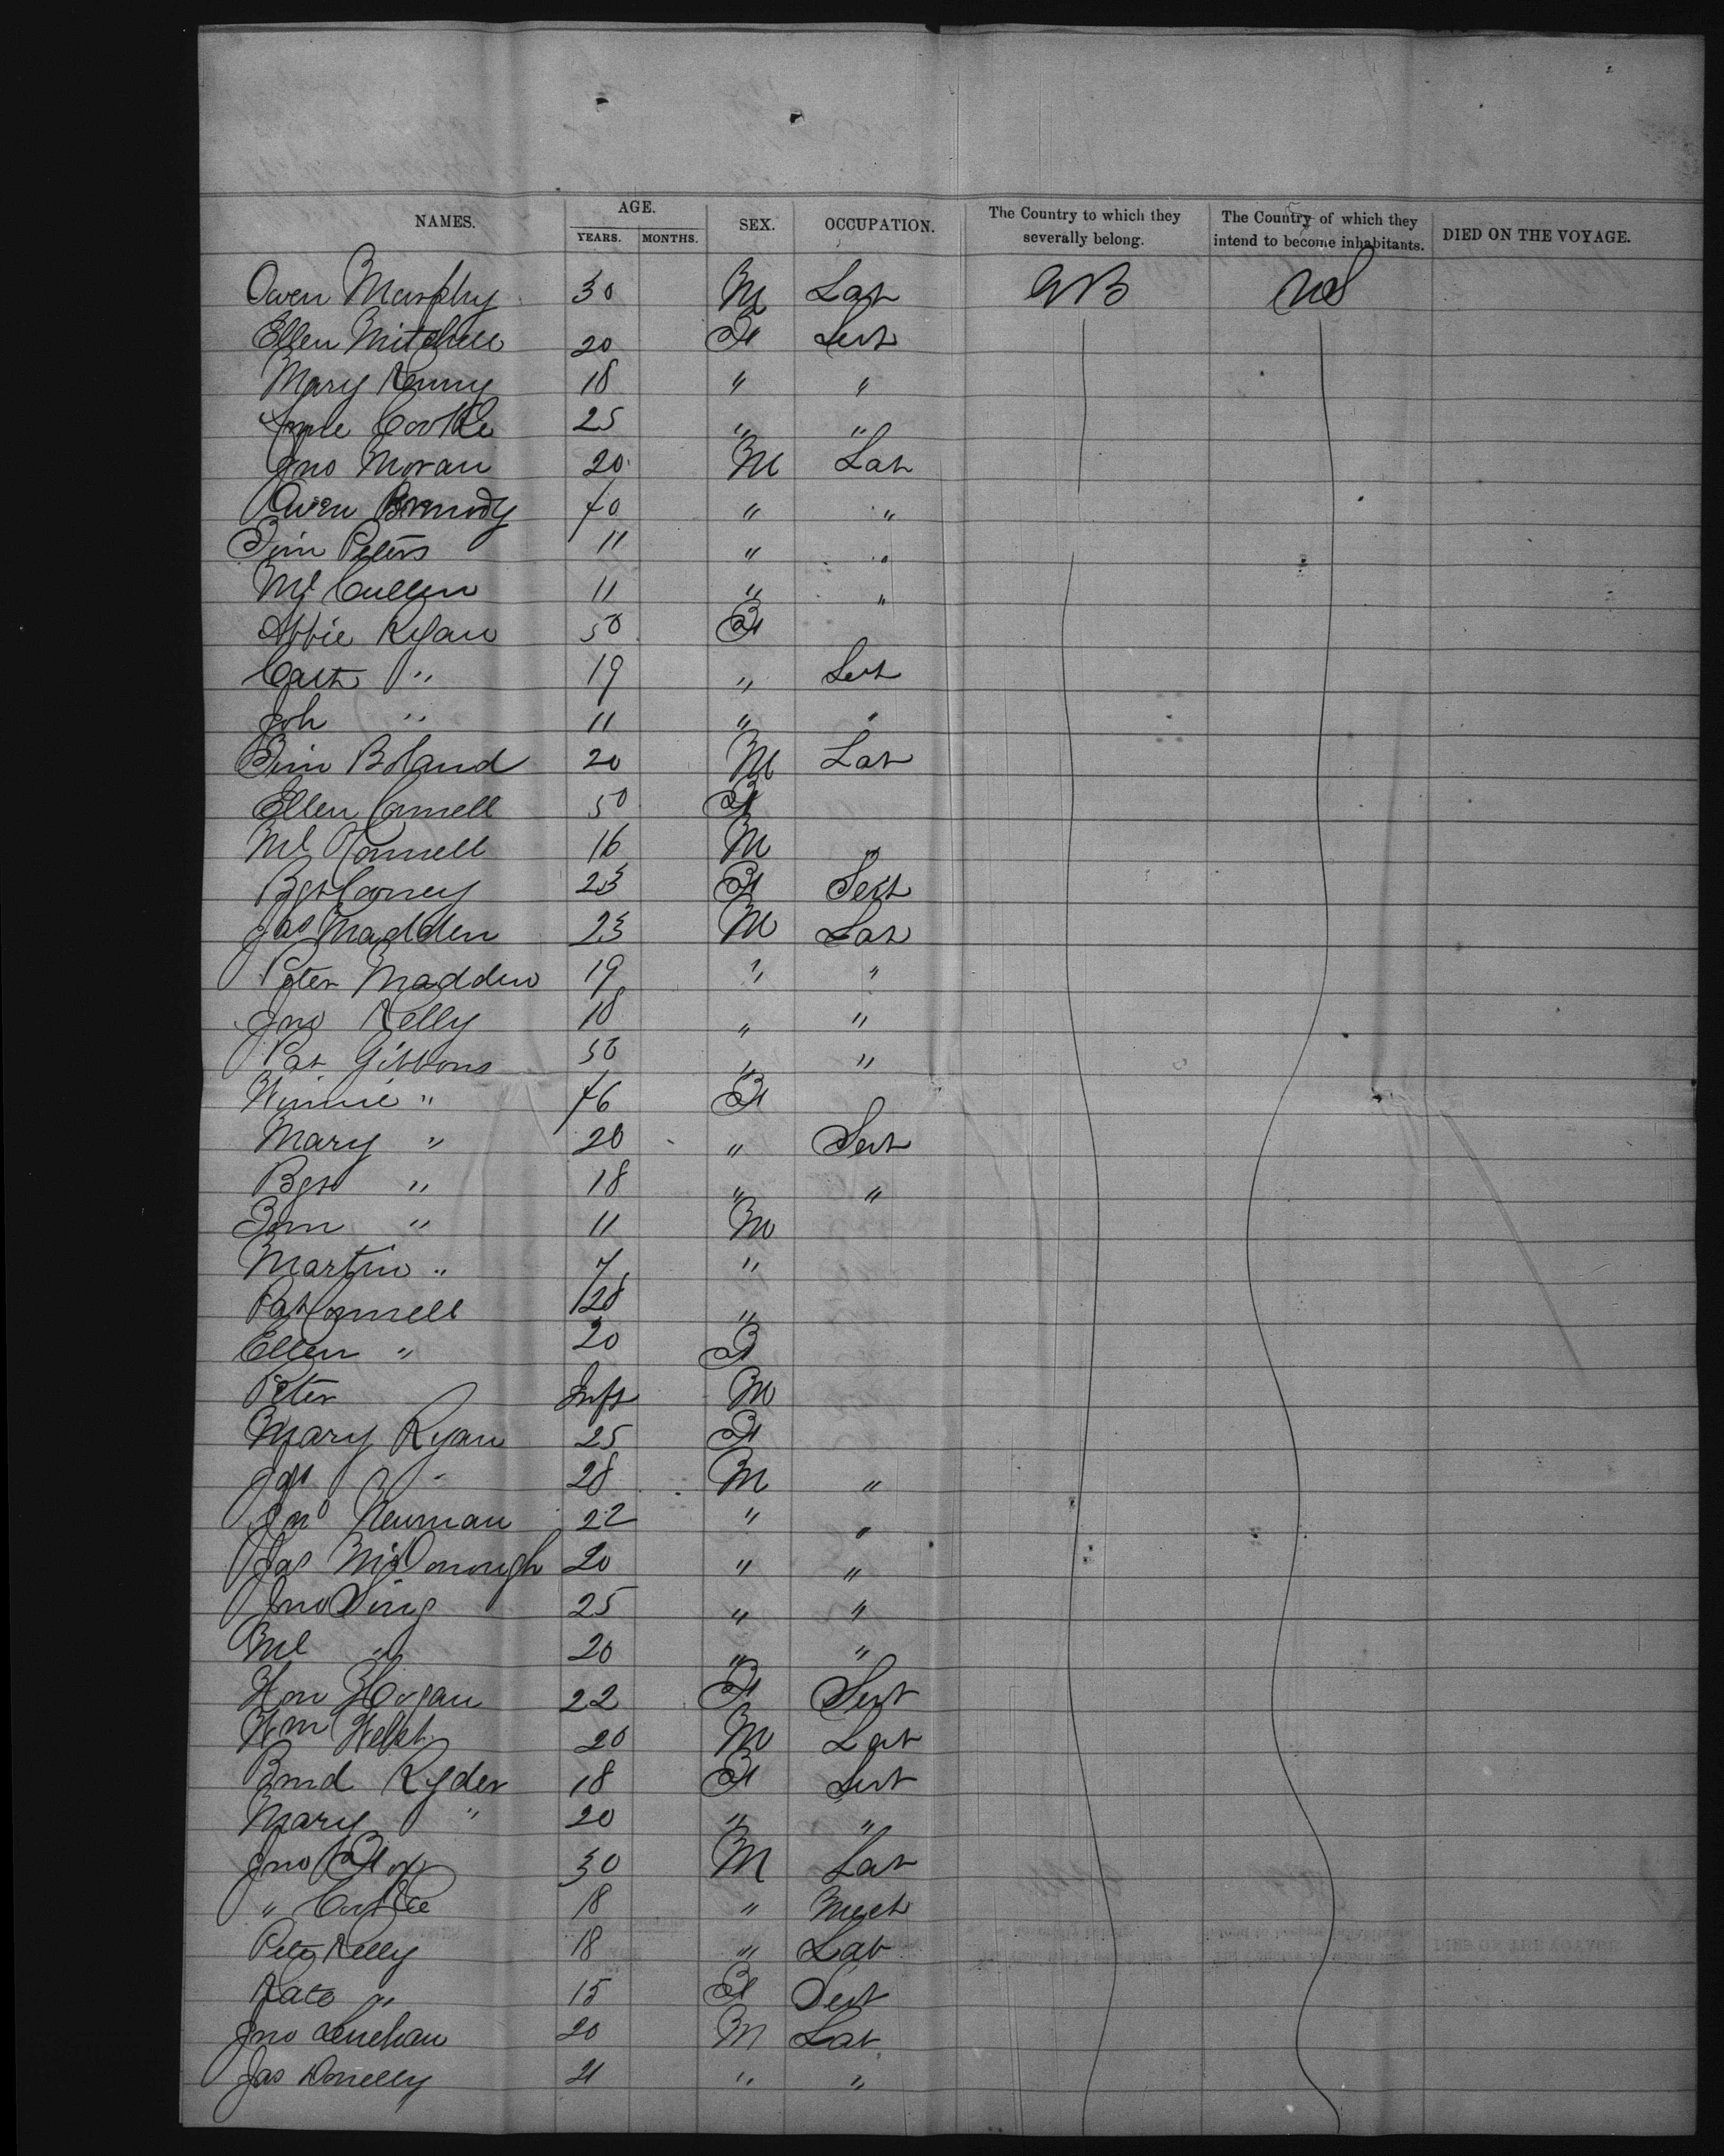 NAMES. AGE. YEARS. MONTHS. SEX. OCCUPATION. The Country to which they severally belong. The Country of which they intend to become inhabitants. DIED ON THE VOYAGE.
Owen Murphy 30 M Lab GB US
Ellen Mitchell 20 F Sert
Mary Kenny 18 " "
Anne Cooke 25 " "
Jno Moran 20 M Lab
Owen 40 " "
Tim Peters 11 " "
Ml Cullen 11 " "
Abbie Ryan 50 F
Cath " 19 " Sert
Joh " 11 " "
Tim Boland 20 M Lab
Ellen Connell 50 F
Ml Connell 16 M "
Bgt Carney 23 F Sert
Jas Madden 23 M Lab
Peter Madden 19 " "
Jno Kelly 18 " "
Pat Gibbons 50 " "
Winnie " 46 F
Mary " 20 " Sert
Bgt " 18 " "
Tom " 11 M
Martin " 7 "
Pat Connell 28 "
Ellen " 20 F
Peter Inft M
Mary Ryan 25 F
" 28 M "
Jno Newman 22 " "
Jas McDonough 20 " "
Jno King 25 " "
Ml " 20 " "
Hon Horgan 22 F Sert
Wm Welsh 20 M Lab
Ryder 18 F Sert
Mary " 20 " "
Jno Fox 30 M Lab
" 18 "
Peter Kelly 18 " Lab
Kate " 15 F Sert
Jno Lenehan 20 M Lab
Jas Donelly 21 " "